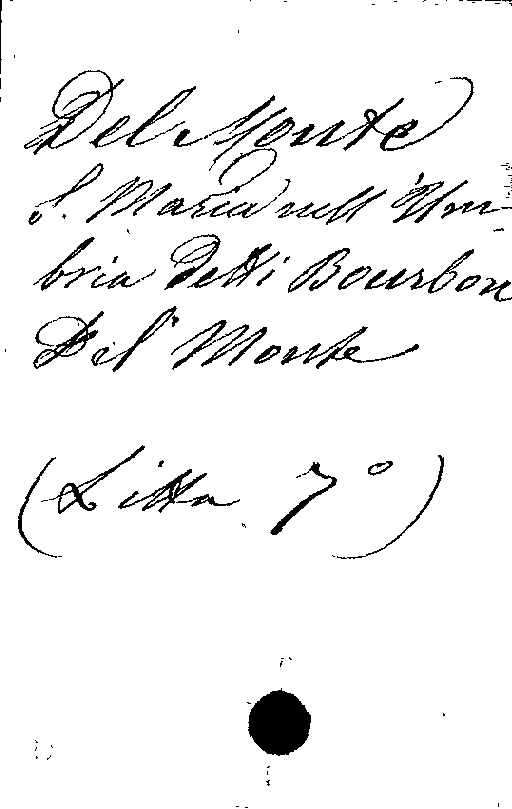 Del Monte
S. Maria nell' Um-
bria Detti Bourbon
Del Monte
(Litta 7°)